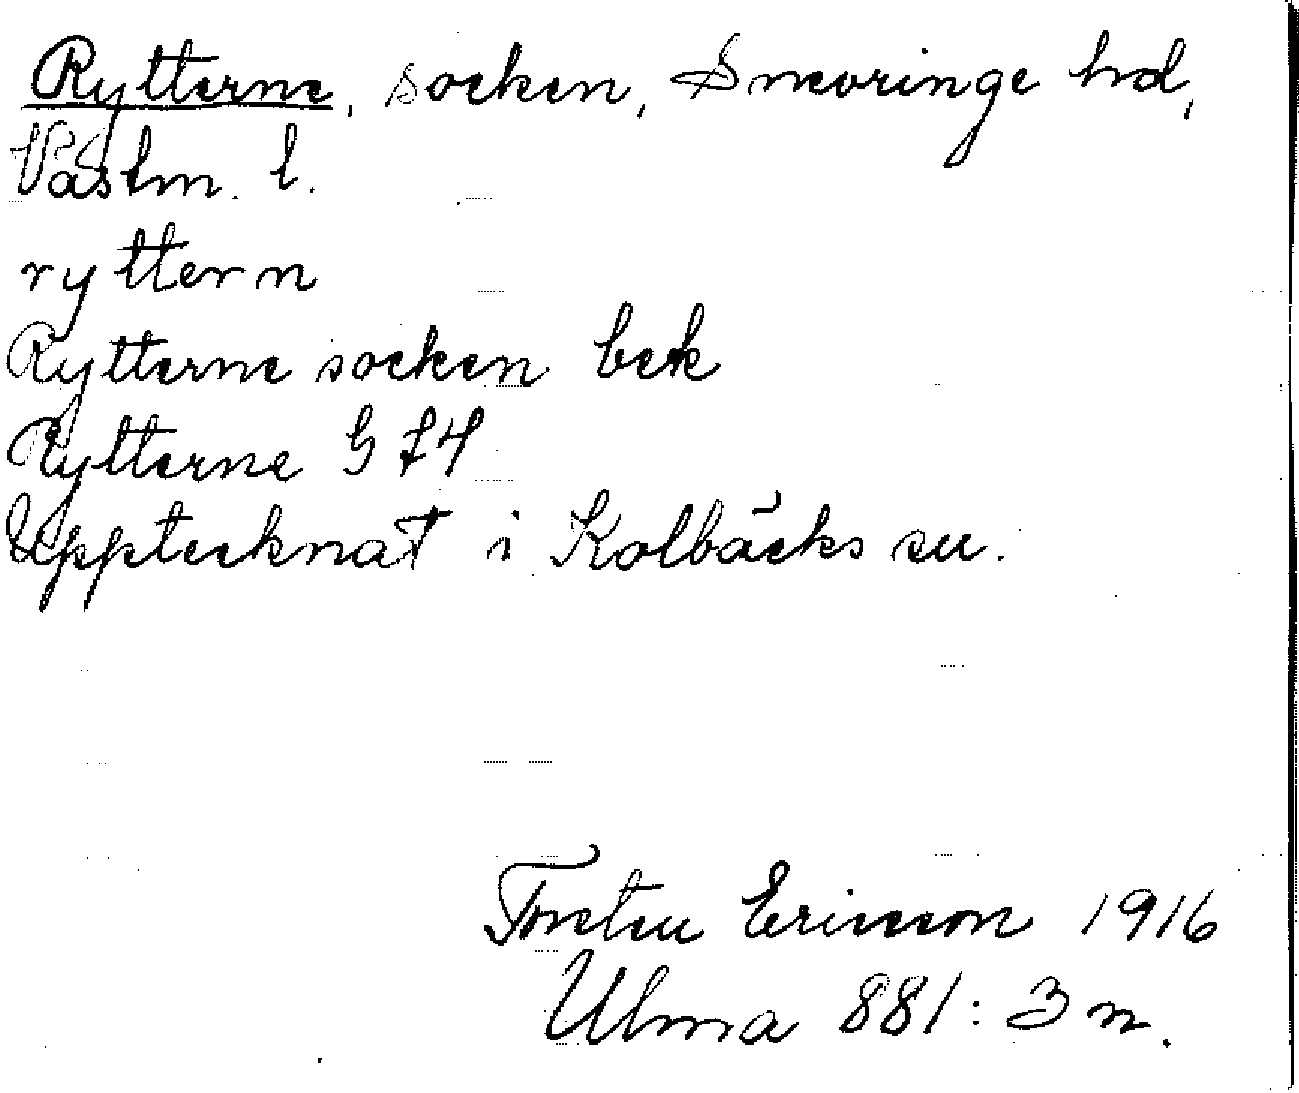 Rytterne, socken, Snevringe hd,
Västm. l.
ryttern
Rytterne socken bek
Rytterne G 74
Upptecknat i Kolbäcks sn.
Torsten Ericson 1916
Ulma 881: 3 n.